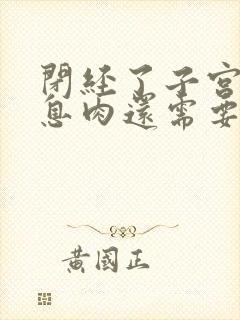 閉經了子宮
息肉還需要
黃國正